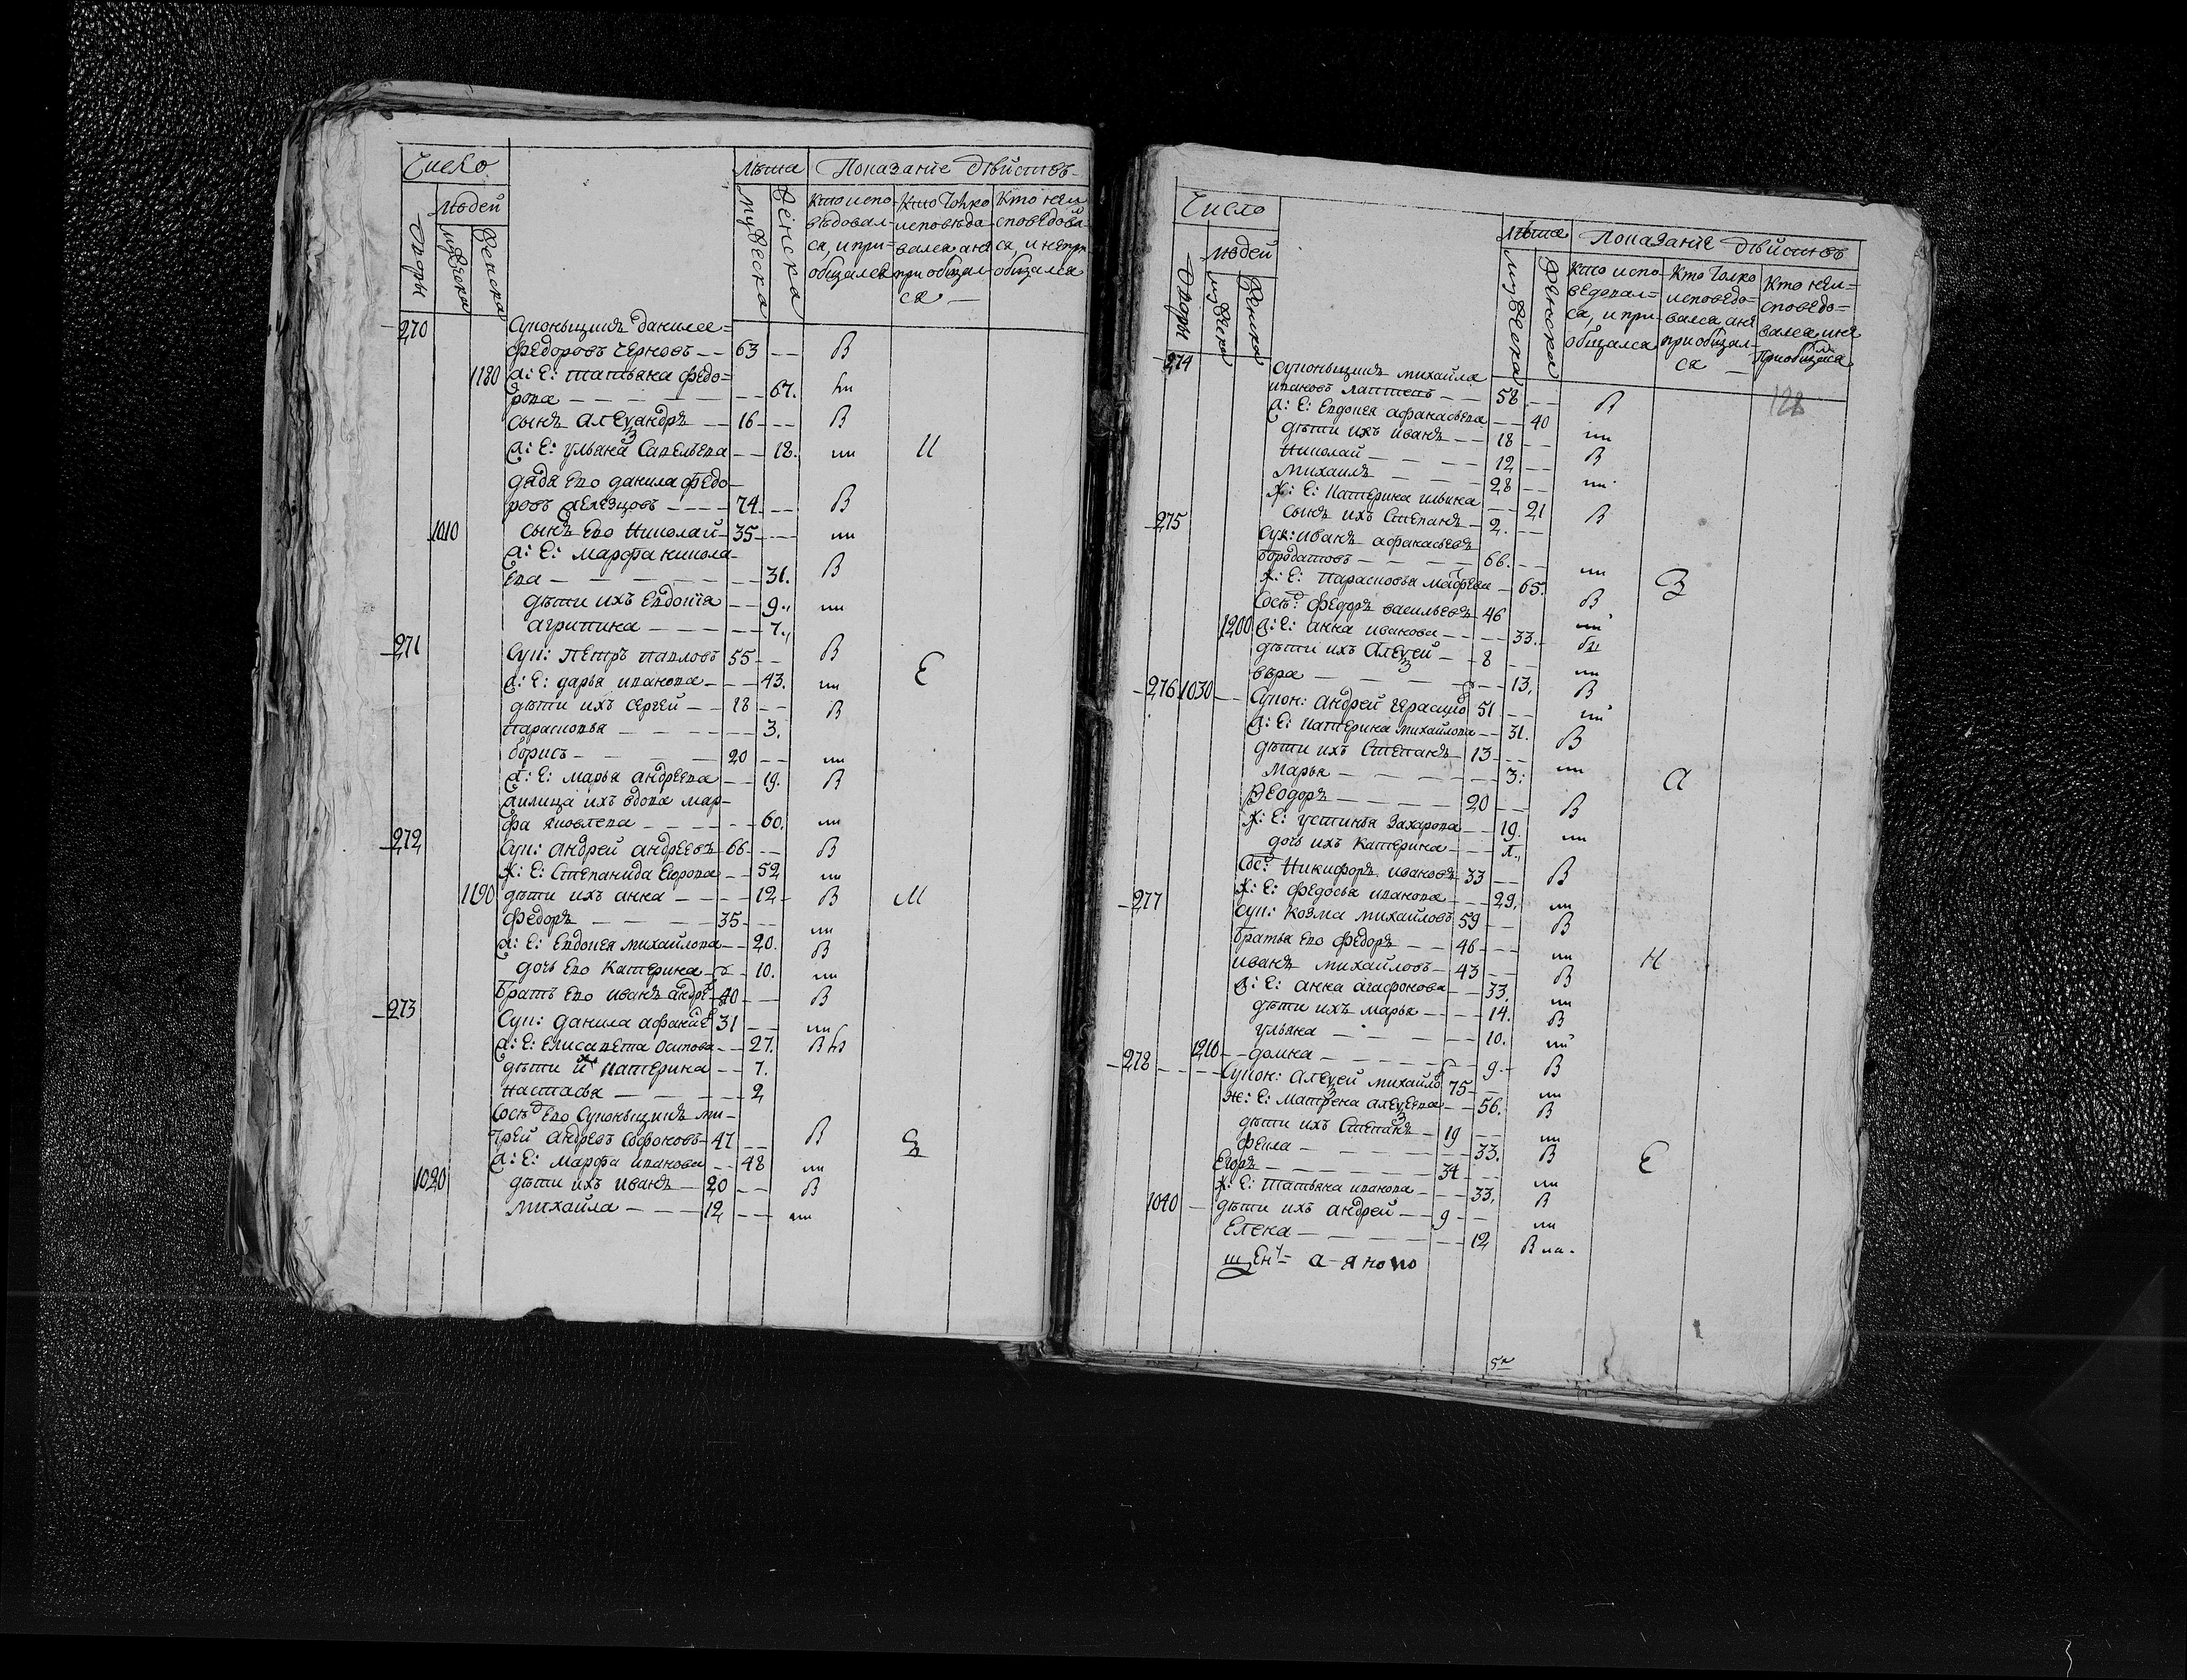 Число
Людей
Двори
мужеска
женска
лѣта
мужеска
женска
Показаніе дѣйствъ
Кто испо-
вѣдовал-
ся, и при-
общался
Кто толко
исповѣда-
вался а не
приобщал-
ся —
Кто неи
споведова
ся, и непри
общался
270
Супонѣщикъ данилее=
федоровъ черновъ — — 63 — — В
1180 ж: Е: татьяна федо=
рова — — — — 67.
сынъ алеѯандръ — — 16 — — В
ж: Е: ульяна Савельева — — 18. И
дядя Ево данила федо-
ровъ — — — 74 — — В
1010 сынъ Ево Николай — 35 — —
ж: Е: марфа никола-
Ева — — — 31. В
дѣти ихъ Евдотія — — 9.
агрипина — — — 7.
271 Суп: Петръ павловъ 55 — — В
ж: Е: дарья иванова — — 43. Е
дѣти ихъ сергей — — 18 — — В
парасковья — — — 3.
борисъ — — — 20 — —
ж: Е: марья андреева — — 19. В
ихъ вдова мар-
фа яковлева — — — 60.
272 Суп: андрей андреевъ 66 — — В
ж: Е: Степанида Егорова — — 52
1190 дѣти ихъ анна — — — 12 — В М
федоръ — — — 35 — —
ж: Е: Евдокея михайлова — — 20. В
дочь Ево катерина — — 10.
братъ Ево иванъ андре 40 — — В
273 Суп: данила афанасе 31 — —
ж: Е: Елисавета Осипова — — 27. В
дѣти их катерина — — 7.
настасья — — — 2
Сосѣд Ево Супонѣщикъ ми-
трей андревъ Софоновъ — 47 — — В
ж: Е: марфа иванова — — 48
1020 дѣти ихъ иванъ — 20 — — В
михайла — — — 12 — —
Число
Людей
Дворы
мужеска
женска
лѣта
мужеска
женска
Показаніе дѣйствъ
Кто испо-
ведовал=
ся, и при-
общался
Кто толко
исповедо=
вался а не
приобщал-
ся —
Кто неи=
споведо=
вался, и не
приобщался
128
274 Супонѣщикъ михайла
ивановъ лаптевъ — — 58 — — В
ж: Е: Евдокея афанасьева — — 40
дѣти ихъ иванъ — — 18 — — В
николай — — — 12 — —
михаилъ — — — 28 — —
ж: Е: катерина ильина — — 21 В
сынъ ихъ Степанъ — 2. — —
275 Суп: иванъ афанасьевъ
бородатовъ — — — 66. — —
ж: Е: парасковья матвѣева — 65. В З
Сосѣд: федоръ васильевъ 46
1200 ж: Е: анна иванова — — — 33.
дѣти ихъ Алеѯей — — 8 — —
вѣра — — — 13. В
276 1030 Супон: андрей герасимо 51 — —
ж: Е: катерина михайлова — — 31. В
дѣти ихъ Степанъ — 13 — —
марья — — — 3: а
Ѳеодоръ — — — 20 — — В
ж: Е: устинья Захарова — — 19.
дочь ихъ катерина — — —
Сос: Никифоръ ивановъ 33 — — В
ж: Е: федосья иванова — — — 29.
277 Суп: козма михайловъ 59 — — В
братья Ево федоръ — — 46 — —
иванъ михайловъ — 43 — — В Н
ж: Е: анна агафонова — — 33.
дѣти ихъ марья — — — 14. В
ульяна — — — 10.
1210 домна — — — 9. В
278 Супон: алеѯей михайло 75 — —
ж: Е: матрена алеѯеева — — 56. В
дѣти ихъ Степанъ — 19 — —
фекла — — — 33. В Е
Егоръ — — — 34 — —
ж: Е: татьяна иванова — — — 33. В
1040 дѣти ихъ андрей — — 9 — —
Елена — — — 12 В